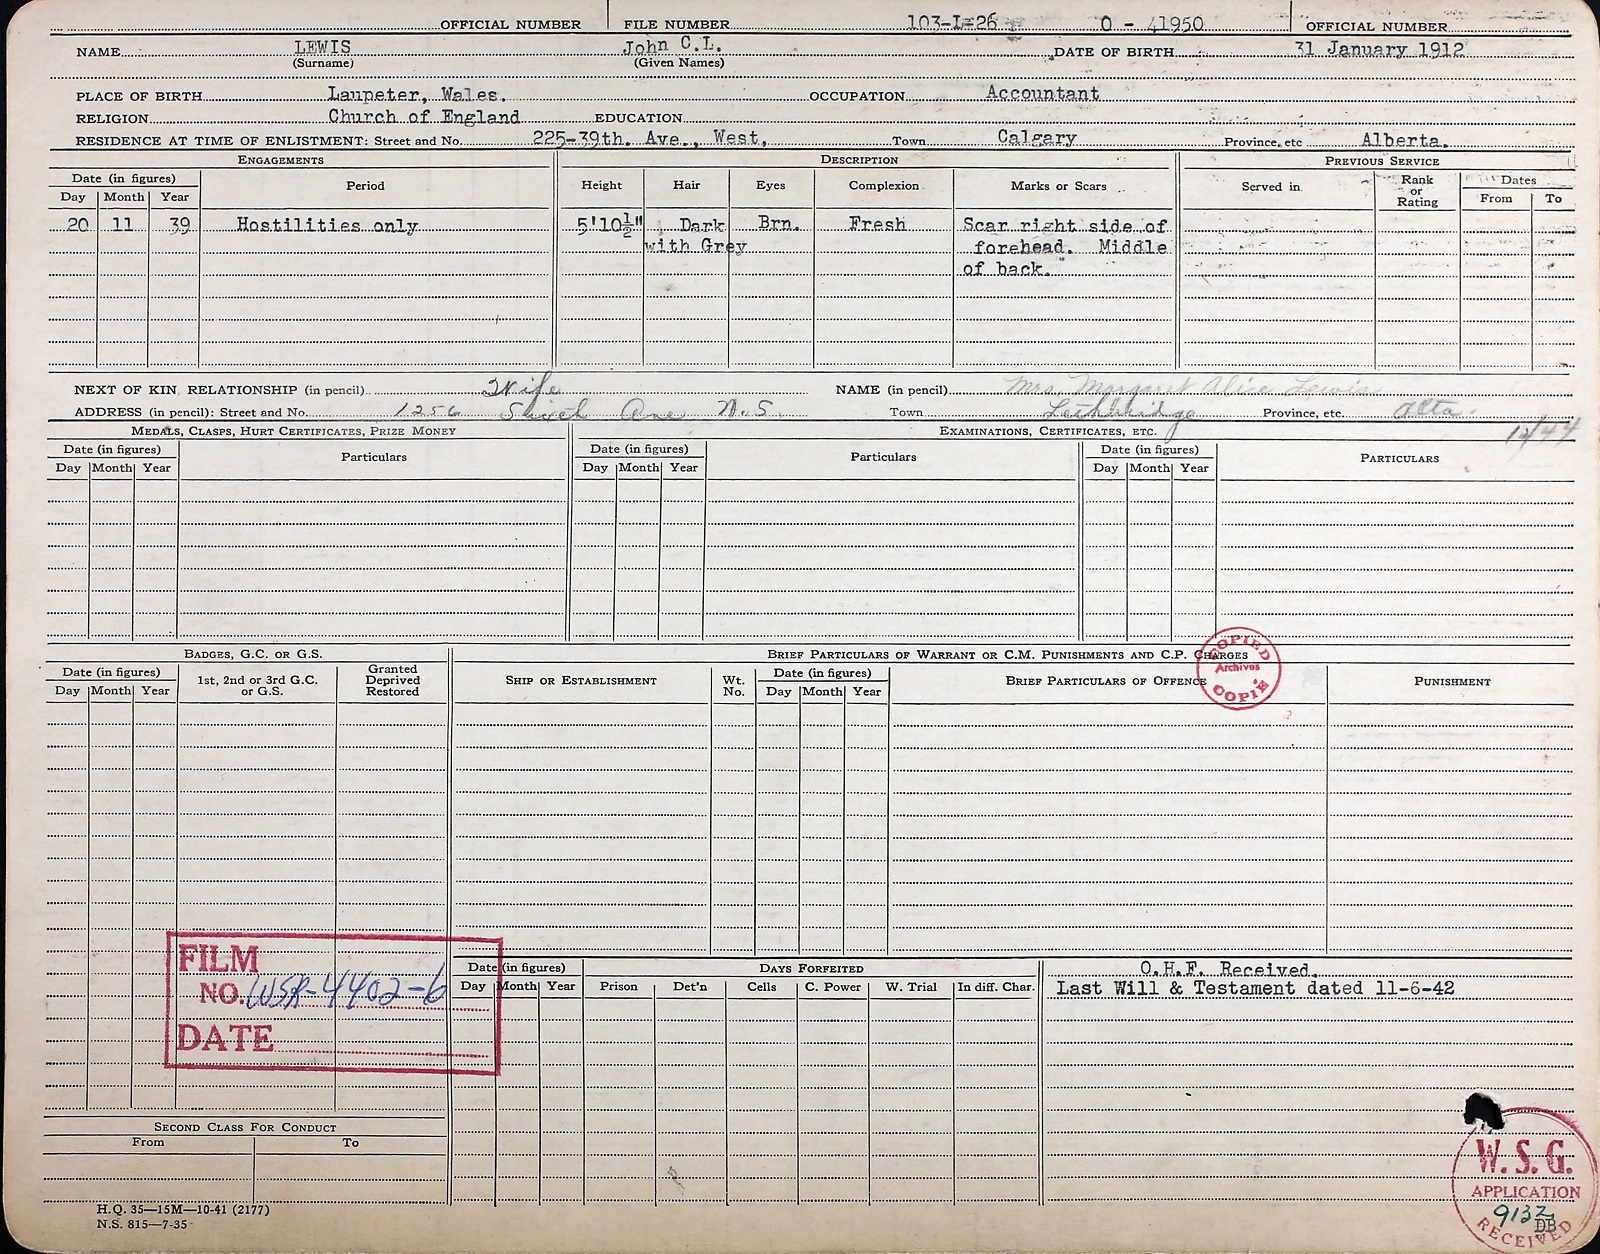 OFFICIAL NUMBER FILE NUMBER 103-L-26 O - 41950 OFFICIAL NUMBER
NAME LEWIS John C.L. DATE OF BIRTH 31 January 1912
(Surname) (Given Names)
PLACE OF BIRTH Laupeter, Wales. OCCUPATION Accountant
RELIGION Church of England EDUCATION
RESIDENCE AT TIME OF ENLISTMENT: Street and No. 225-39th. Ave., West, Town Calgary Province, etc Alberta.
ENGAGEMENTS DESCRIPTION PREVIOUS SERVICE
Date (in figures) Period Height Hair Eyes Complexion Marks or Scars Served in Rank or Rating Dates
Day Month Year From To
20 11 39 Hostilities only 5'10½" Dark Brn. Fresh Scar right side of
with Grey forehead. Middle
of back.
NEXT OF KIN RELATIONSHIP (in pencil) Wife NAME (in pencil) Mrs. Margaret Alice Lewis
ADDRESS (in pencil): Street and No. 1256 Sixth Ave N.S. Town Lethbridge Province, etc. Alta.
12/44
MEDALS, CLASPS, HURT CERTIFICATES, PRIZE MONEY EXAMINATIONS, CERTIFICATES, ETC.
Date (in figures) Particulars Date (in figures) Particulars Date (in figures) PARTICULARS
Day Month Year Day Month Year Day Month Year
COPIED
Archives
COPIÉ
BADGES, G.C. OR G.S. BRIEF PARTICULARS OF WARRANT OR C.M. PUNISHMENTS AND C.P. CHARGES
Date (in figures) 1st, 2nd or 3rd G.C. or G.S. Granted Deprived Restored SHIP OR ESTABLISHMENT Wt. No. Date (in figures) BRIEF PARTICULARS OF OFFENCE PUNISHMENT
Day Month Year Day Month Year
FILM
NO. WSR-4402-6
DATE
Date (in figures) DAYS FORFEITED O.H.F. Received.
Day Month Year Prison Det'n Cells C. Power W. Trial In diff. Char. Last Will & Testament dated 11-6-42
SECOND CLASS FOR CONDUCT
From To
W.S.G.
APPLICATION
9132
DB
RECEIVED
H.Q. 35—15M—10-41 (2177)
N.S. 815—7-35